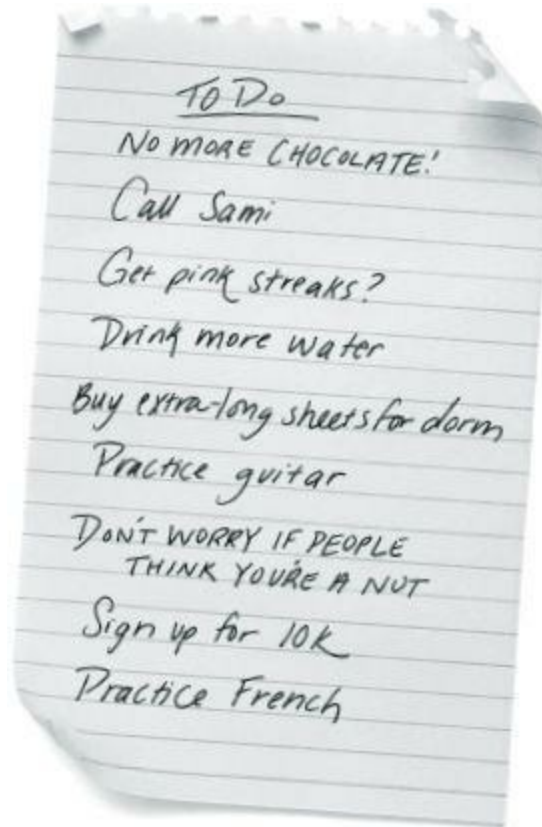 TO DO
NO MORE CHOCOLATE!
Call Sami
Get pink streaks?
Drink more water
Buy extra-long sheets for dorm
Practice guitar
DON'T WORRY IF PEOPLE
THINK YOU'RE A NUT
Sign up for 10K
Practice French